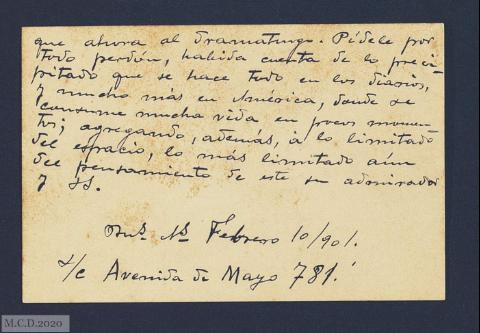 que ahora al dramaturgo. Pídele por
todo perdón, habida cuenta de lo preci-
pitado que se hace todo en los diarios,
y mucho más en América, donde se
consume mucha vida en pocos momen-
tos; agregando, además, a lo limitado
del espacio, lo más limitado aún
del pensamiento de este su admirador
y SS.
Febrero 10/901.
s/c Avenida de Mayo 781.
M.C.D.2020